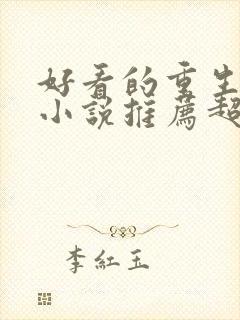 好看的重生
小說推薦超
李紅玉